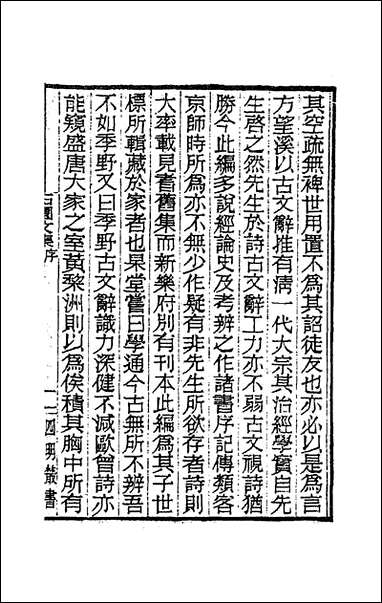 其空疏無裨世用置不爲其詔徒友也亦必以是爲言
方望溪以古文辭雅有淸一代大宗其治經學實自先
生啓之然先生於詩古文辭工力亦不弱古文視詩猶
勝今此編多說經論史及考辨之作諸書序記傳類客
京師時所爲亦不無少作疑有非先生所欲存者詩則
大率載見耆舊集而新樂府別有刊本此編爲其子世
標所輯藏於家者也杲堂嘗曰學通今古無所不辨吾
不如季野又曰季野古文辭識力深健不減歐曾詩亦
能窺盛唐大家之室黃黎洲則以爲俟積其胸中所有
石園文集序
一
四明叢書